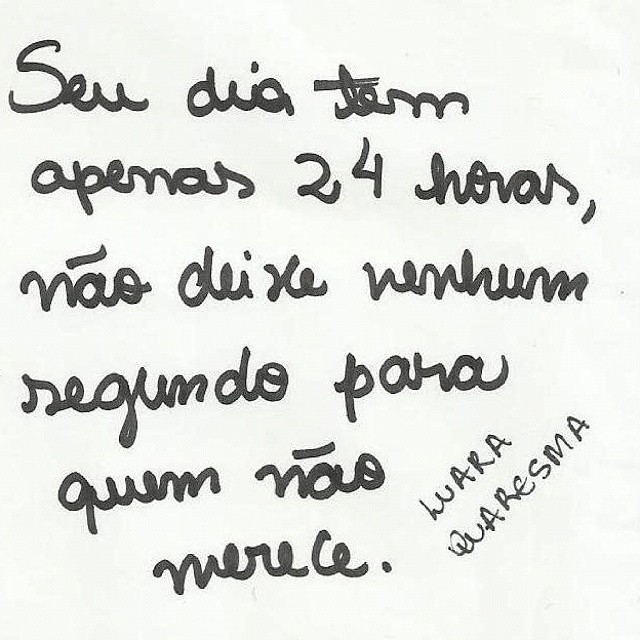 Seu dia tem
apenas 24 horas,
não deixe nenhum
segundo para
quem não
merece.
LUARA
QUARESMA